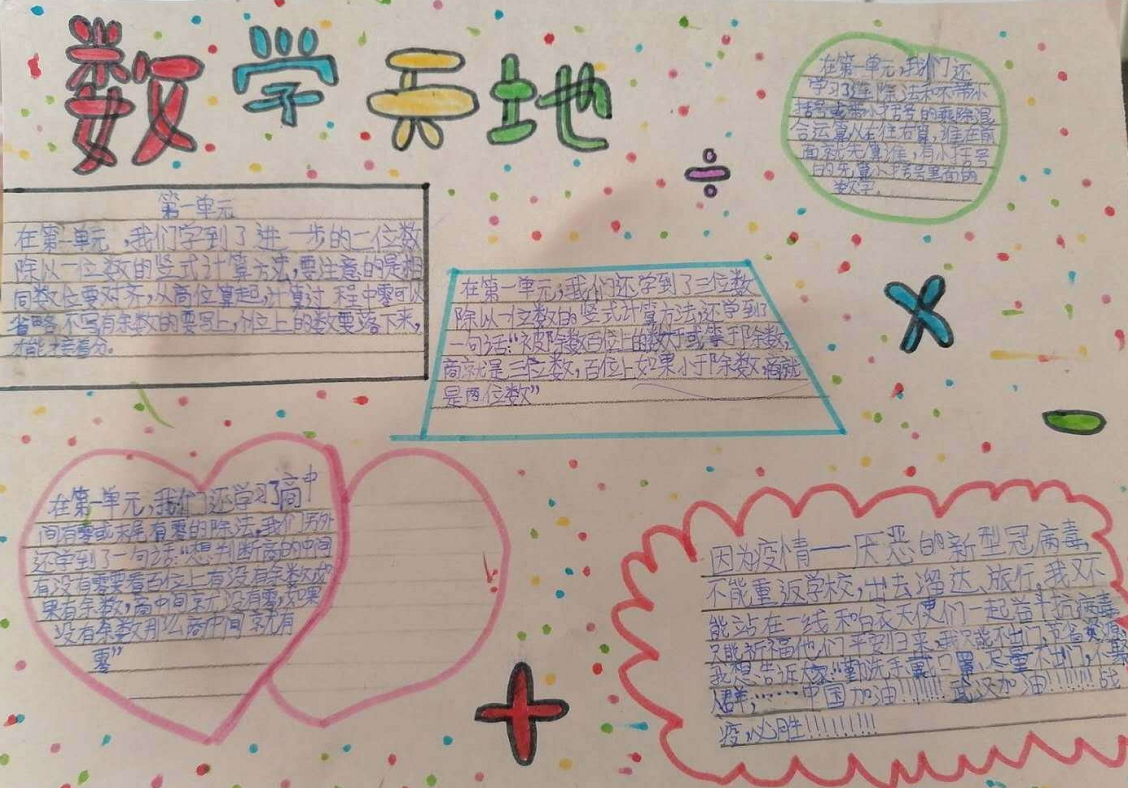 数学天地
在第一单元,我们还
学习了连除法和不带小
括号或带小括号的乘除混
合运算从左往右算,谁在前
面就先算谁,有小括号
的先算小括号里面的
数字
÷
第一单元
在第一单元,我们学到了进一步的二位数
除以一位数的竖式计算方法,要注意的是相
同数位要对齐,从高位算起,计算过程中零可以
省略不写有余数的要写上,个位上的数要落下来,
才能接着分。
在第一单元,我们还学到了三位数
除以一位数的竖式计算方法,还学到了
一句话:“被除数百位上的数大于或等于除数,
商就是三位数,百位上如果小于除数,商就
是两位数”
×
-
在第一单元,我们还学习了商中
间有零或末尾有零的除法,我们另外
还学到了一句话:“想判断商的中间
有没有零要看百位上有没有余数,如
果有余数,商中间就没有零,如果
没有余数那么商中间就有
零”
+
因为疫情——厌恶的新型冠病毒,
不能重返学校,出去溜达,旅行,我又不
能站在一线和白衣天使们一起奋斗抗病毒
只能祈福他们平安归来,我只能不出门,节省资源,
我想告诉大家“勤洗手戴口罩,尽量不出门,不聚
人群,……中国加油!!!!!!!武汉加油!!!!!!!战
疫,必胜!!!!!!!!!